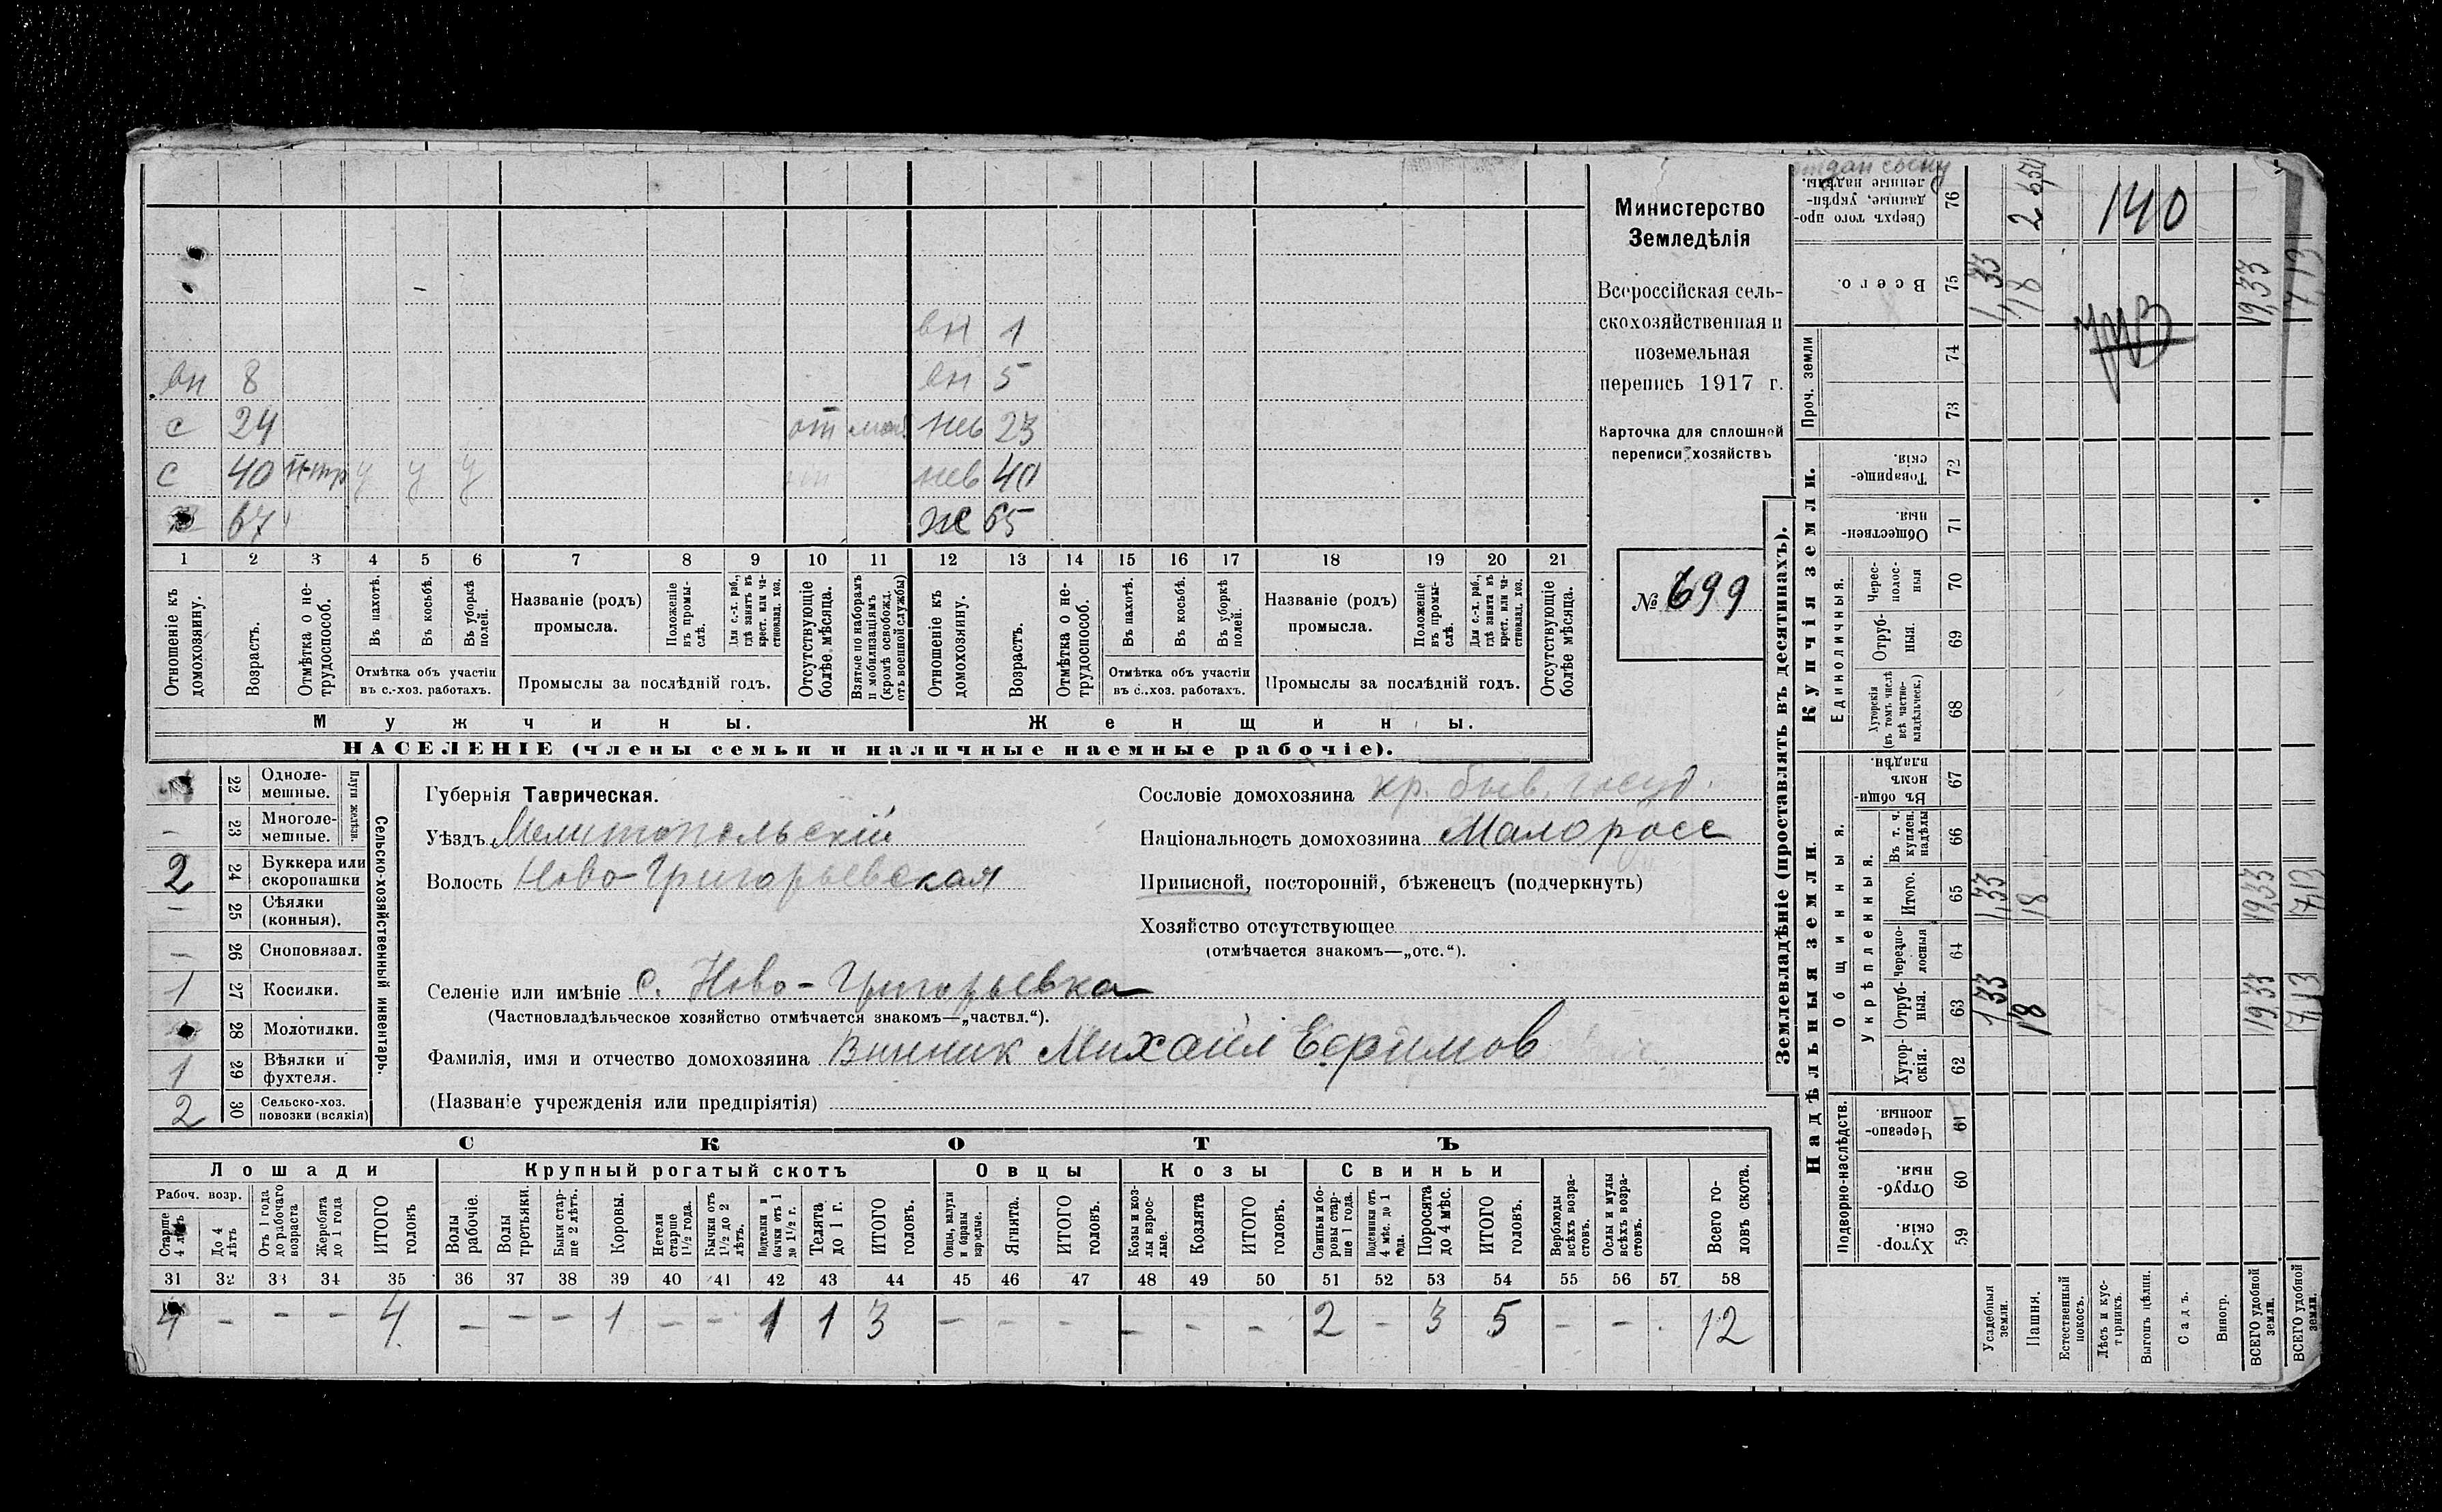 вн 1
вн 8 вн 5
с 24 от моб. нев 23
с 40 у у у нев 40
67 ж 65
1 2 3 4 5 6 7 8 9 10 11 12 13 14 15 16 17 18 19 20 21
Отношеніе къ домохозяину.
Возрастъ.
Отмѣтка о нетрудоспособ.
Въ пахотѣ.
Въ косьбѣ.
Въ уборкѣ полей.
Отмѣтка объ участіи въ с.-хоз. работахъ.
Названіе (родъ) промысла.
Положеніе въ промыслѣ.
Для с.-х. раб., гдѣ занятъ въ крест. или частновлад. хоз.
Промыслы за послѣдній годъ.
Отсутствующіе болѣе мѣсяца.
Взятые по наборамъ и мобилизаціямъ (кромѣ освобожд. отъ военной службы)
Отношеніе къ домохозяину.
Возрастъ.
Отмѣтка о нетрудоспособ.
Въ пахотѣ.
Въ косьбѣ.
Въ уборкѣ полей.
Отмѣтка объ участіи въ с.-хоз. работахъ.
Названіе (родъ) промысла.
Положеніе въ промыслѣ.
Для с.-х. раб., гдѣ занята въ крест. или частновлад. хоз.
Промыслы за послѣдній годъ.
Отсутствующіе болѣе мѣсяца.
Мужчины. Женщины.
НАСЕЛЕНІЕ (члены семьи и наличные наемные рабочіе).
Министерство
Земледѣлія
Всероссійская сель-
скохозяйственная и
поземельная
перепись 1917 г.
Карточка для сплошной
переписи хозяйствъ
№ 699
Сельско-хозяйственный инвентарь.
Плуги желѣзн.
22 Одноле-мешные.
– 23 Многоле-мешные.
2 24 Буккера или скоропашки
– 25 Сѣялки (конныя).
– 26 Сноповязал.
1 27 Косилки.
28 Молотилки.
1 29 Вѣялки и фухтеля.
2 30 Сельско-хоз. повозки (всякія)
Губернія Таврическая.
Уѣздъ Мелитопольскій
Волость Ново-Григорьевская
Сословіе домохозяина кр. быв. госуд.
Національность домохозяина Малоросс
Приписной, посторонній, бѣженецъ (подчеркнуть)
Хозяйство отсутствующее
(отмѣчается знакомъ—„отс.“).
Селеніе или имѣніе с. Ново-Григорьевка
(Частновладѣльческое хозяйство отмѣчается знакомъ—„частвл.“).
Фамилія, имя и отчество домохозяина Винник Михаил Ефимов
(Названіе учрежденія или предпріятія)
СКОТЪ
Лошади Крупный рогатый скотъ Овцы Козы Свиньи
Рабоч. возр.
Старше 4 лѣтъ
До 4 лѣтъ
Отъ 1 года до рабочаго возраста
Жеребята до 1 года
ИТОГО головъ
Волы рабочіе.
Волы третьяки.
Быки старше 2 лѣтъ.
Коровы.
Нетели старше 1½ года.
Бычки отъ 1½ до 2 лѣтъ.
Подтелки и бычки отъ 1 до 1½ г.
Телята до 1 г.
ИТОГО головъ.
Овцы, валухи и бараны взрослые.
Ягнята.
ИТОГО головъ.
Козы и козлы взрослые.
Козлята
ИТОГО головъ.
Свиньи и боровы старше 1 года.
Подсвинки отъ 4 мѣс. до 1 года.
Поросята до 4 мѣс.
ИТОГО головъ.
Верблюды всѣхъ возрастовъ.
Ослы и мулы всѣхъ возрастовъ.
Всего головъ скота.
31 32 33 34 35 36 37 38 39 40 41 42 43 44 45 46 47 48 49 50 51 52 53 54 55 56 57 58
4 – – – 4 – – – 1 – – 1 1 3 – – – – – – 2 – 3 5 – – . 12
Землевладѣніе (проставлять въ десятинахъ).
отдан сыну
Сверхъ того проданные, укрѣпленные надѣлы. 76
140
Всего. 75 1,33 18 19,33 7 13
Проч. земли 74 73
Купчія земли.
Товарищескія. 72
Общественныя. 71
Единоличныя.
Черес-полос-ныя 70
Отруб-ныя. 69
Хуторскія (въ томъ числѣ всѣ частно-владѣльческ.) 68
Надѣльныя земли.
Общинныя.
Въ общинномъ владѣн. 67
Укрѣпленныя.
Въ т. ч. куплен. надѣлы 66
Итого. 65 1,33 18 19,33 7,13
Черезполосныя 64
Отруб-ныя. 63 1,33 18 19,33 7,13
Хутор-скія. 62
Подворно-наслѣдств.
Черезпо-лосныя. 61
Отруб-ныя. 60
Хутор-скія. 59
Усадебныя земли.
Пашня.
Естественный покосъ.
Лѣсъ и кустарникъ.
Выгонъ цѣлин.
Садъ.
Виногр.
ВСЕГО удобной земли.
ВСЕГО удобной земли.